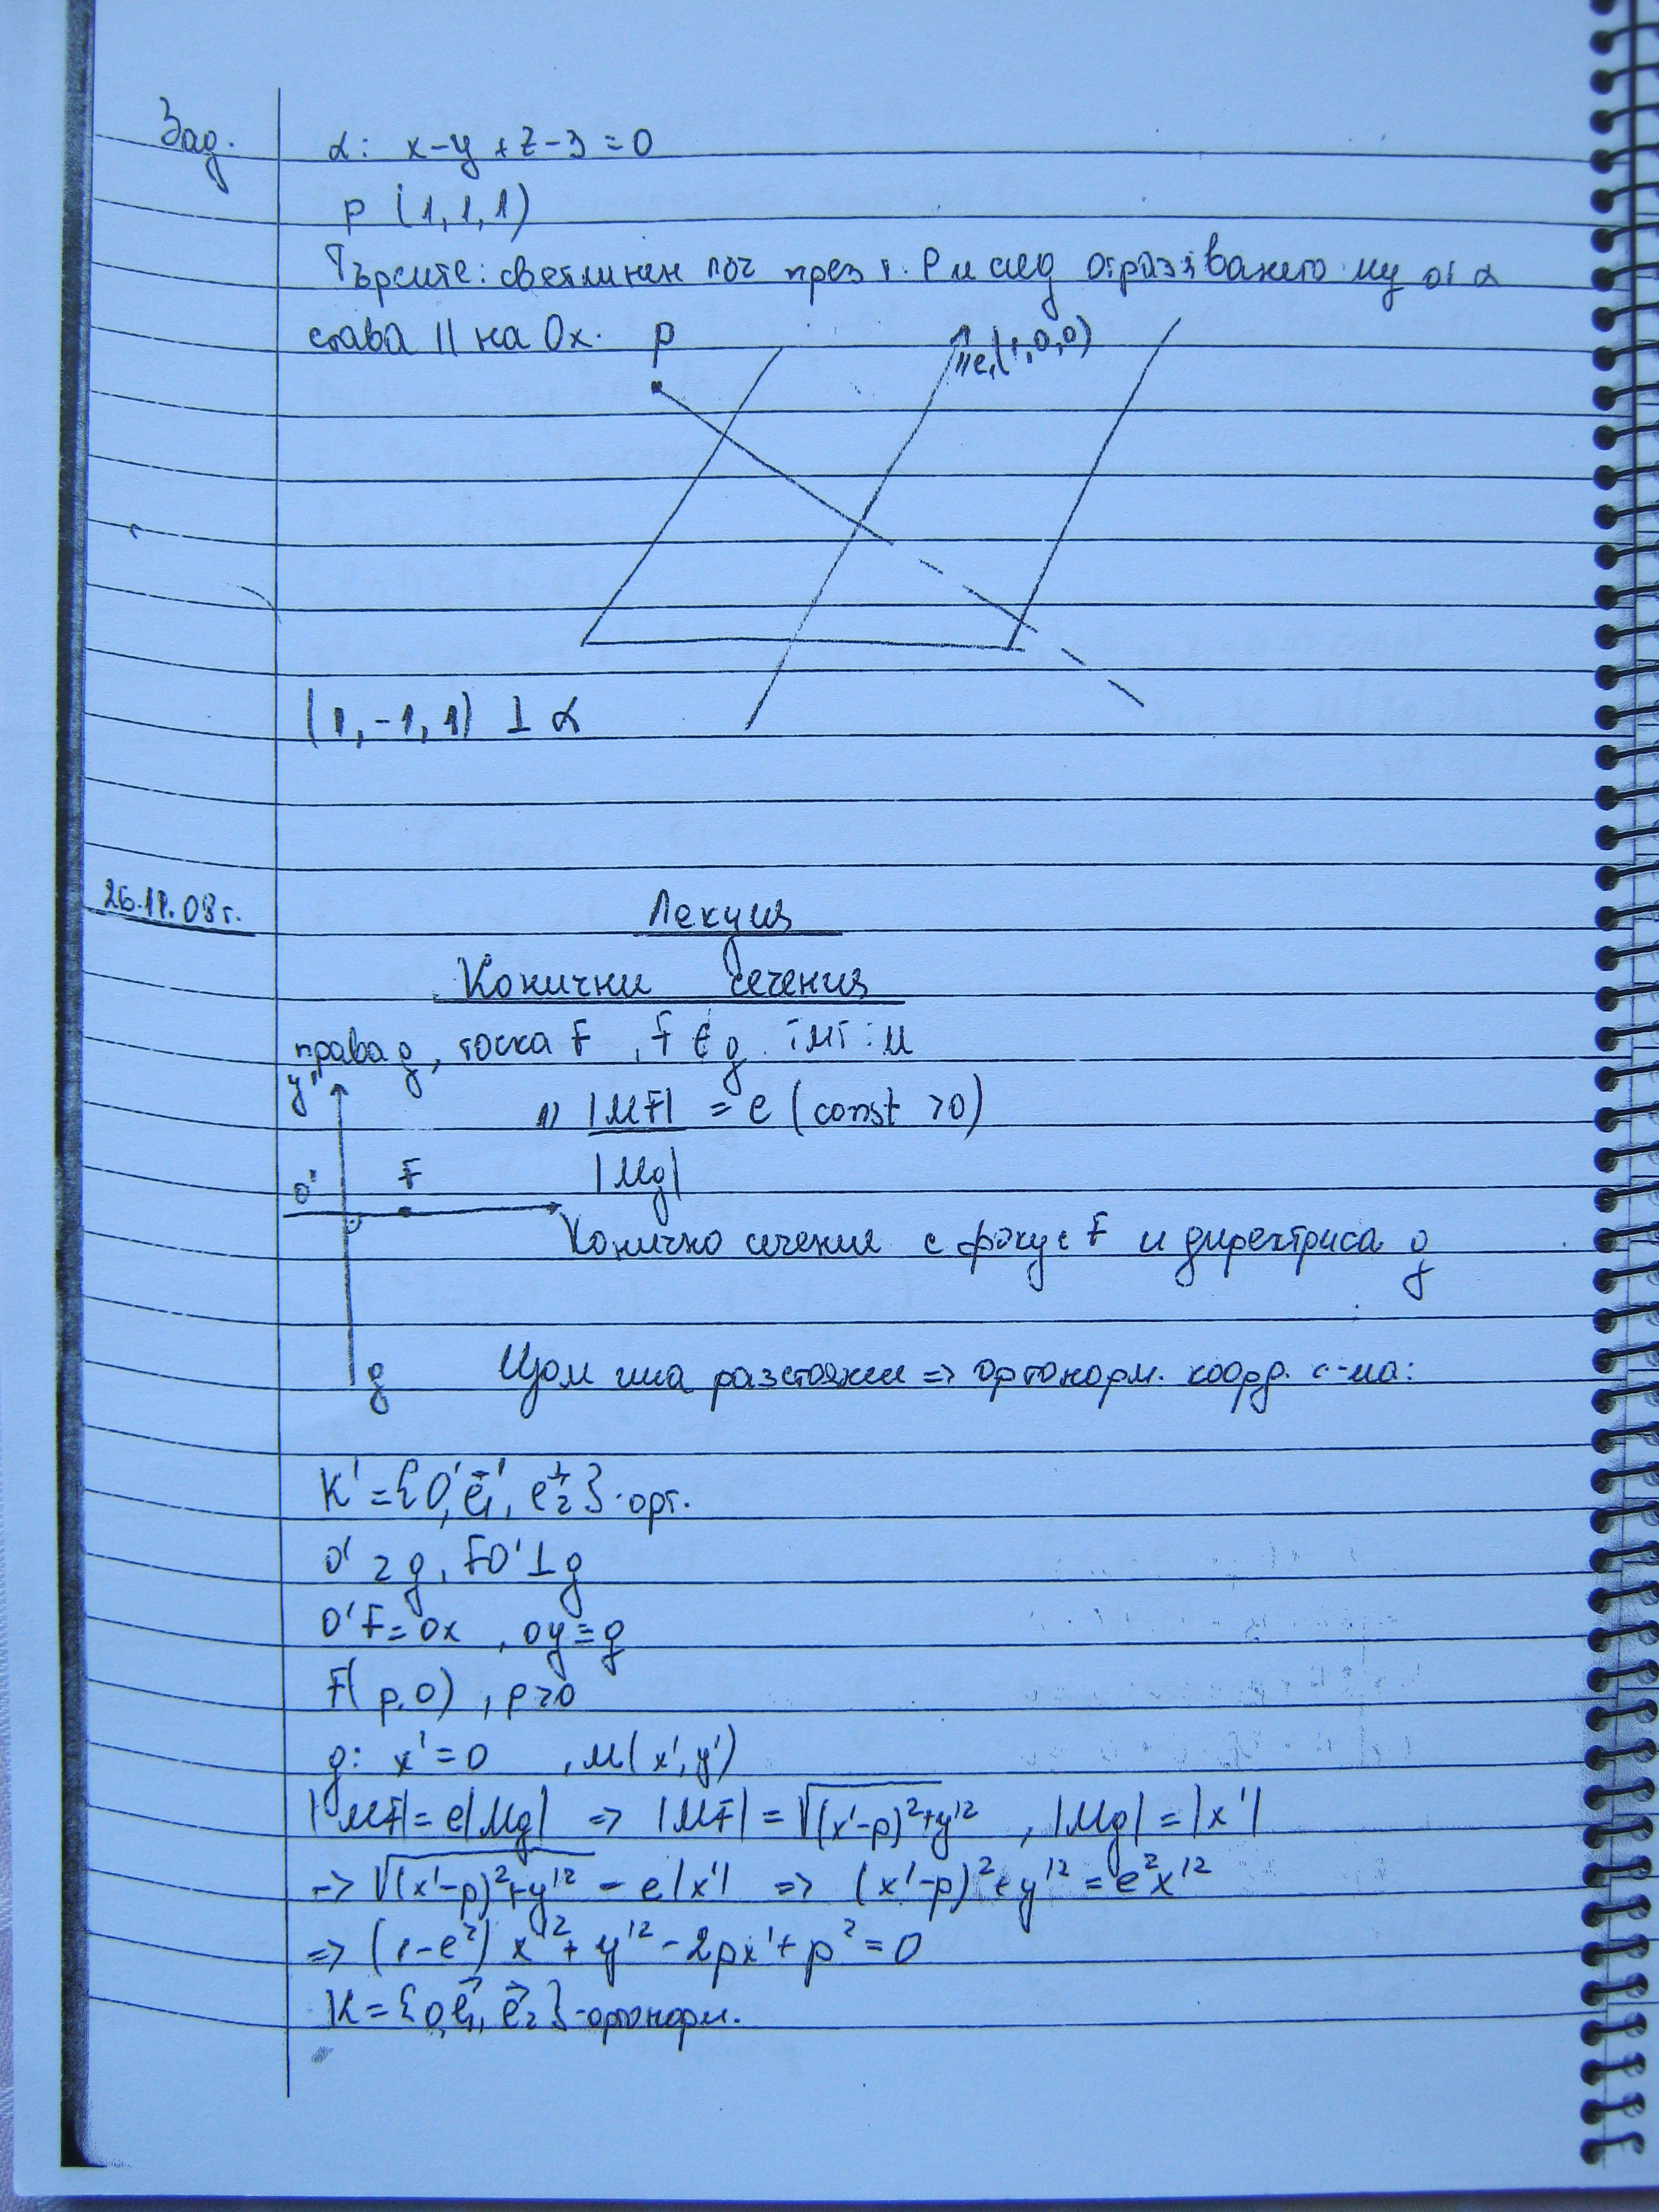 Зад.
α: x-y+z-3=0
P (1,1,1)
Търсите: светлинен лъч през т. P и след отразяването му от α
става || на Ox.
P
||e₁(1,0,0)
(1,-1,1) ⊥ α
26.11.08г.
Лекция
Конични сечения
права g, точка F, F ∉ g. ГМТ: M
y'
1) |MF| / |Mg| = e (const >0)
O' F
Конично сечение с фокус F и директриса g
g
Щом има разстояния => ортонорм. коорд. с-ма:
K'={O', e₁', e₂'}-орт.
O' z g, FO' ⊥ g
O'F=Ox, Oy≡g
F(p,0), p>0
g: x'=0, M(x',y')
|MF|=e|Mg| => |MF|=√(x'-p)²+y'², |Mg|=|x'|
=> √(x'-p)²+y'² = e|x'| => (x'-p)²+y'²=e²x'²
=> (1-e²)x'²+y'²-2px'+p²=0
K={O,e₁,e₂}-ортонорм.